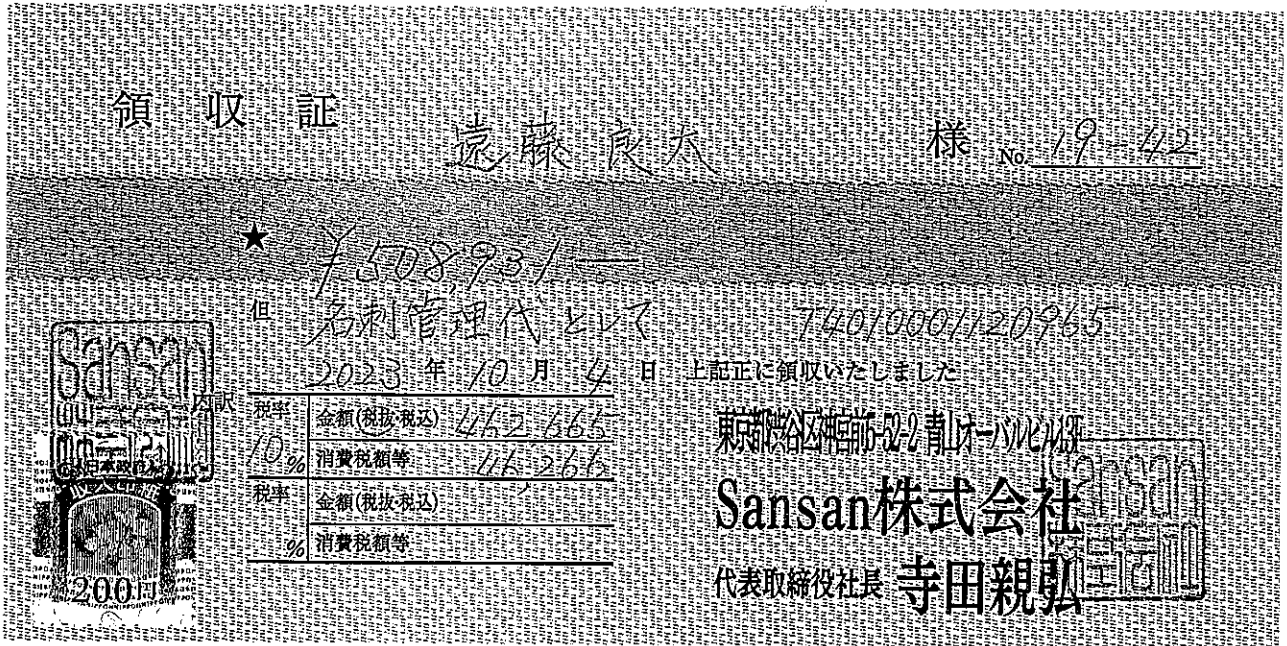 領収証 遠藤良太 様 No. 19-42
★ ¥508,931—
但 名刺管理代として T4010001120965
2023年10月4日 上記正に領収いたしました
内訳 税率 10% 金額(税抜・税込) 462,665
消費税額等 46,266
税率 % 金額(税抜・税込)
消費税額等
東京都渋谷区神宮前5-52-2 青山オーバルビル13F
Sansan株式会社
代表取締役社長 寺田親弘
Sansan
200円